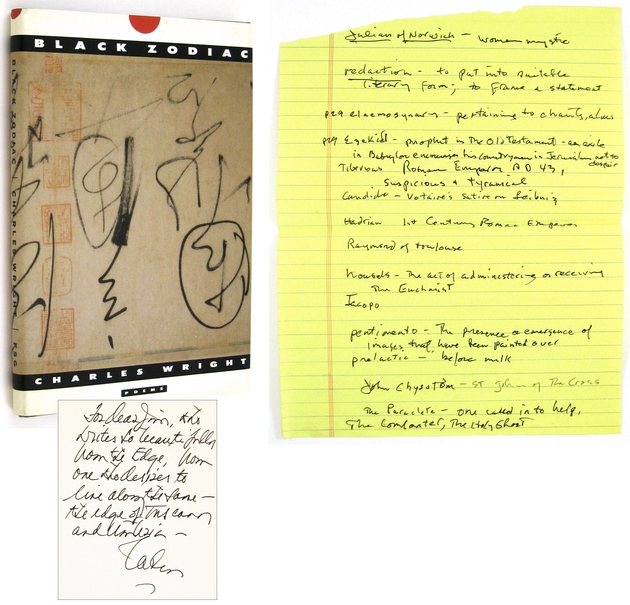 BLACK ZODIAC
BLACK ZODIAC CHARLES WRIGHT FSG
CHARLES WRIGHT
POEMS
For dear Jim, who
writes so beautifully
from the Edge, from
one who desires to
live along the same —
the edge of Tuscany
and Umbria —
Julian of Norwich — woman mystic
redaction — to put into suitable
literary form; to frame a statement
p29 elaemosynary — pertaining to charity, alms
p29 Ezekiel — prophet in the Old Testament — an exile
in Babylon encourages his countrymen in Jerusalem not to
despair
Tiberius Roman Emperor AD 43,
suspicious & tyranical
Candide — Voltaire's satire on Leibniz
Hadrian 1st Century Roman Emperor
Raymond of Toulouse
housels — The act of administering or receiving
the Eucharist
Iacopo
pentimento — The presence or emergence of
images that have been painted over
prelactic — before milk
John Chysotom — St John of the Cross
The Paraclete — one called in to help,
The Comforter, The Holy Ghost